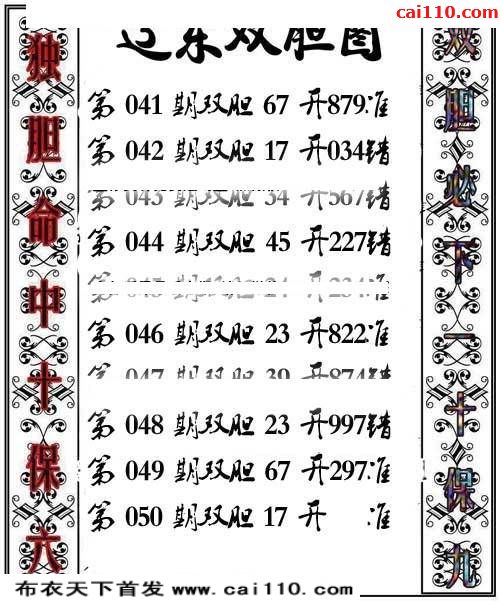 cai110.com
辽东双胆图
独胆命中十保六
双胆必下一十保九
第 041 期双胆 67 开879准
第 042 期双胆 17 开034错
第 043 期双胆 34 开567错
第 044 期双胆 45 开227错
第 046 期双胆 23 开822准
第 048 期双胆 23 开997错
第 049 期双胆 67 开297准
第 050 期双胆 17 开 准
布衣天下首发 www.cai110.com